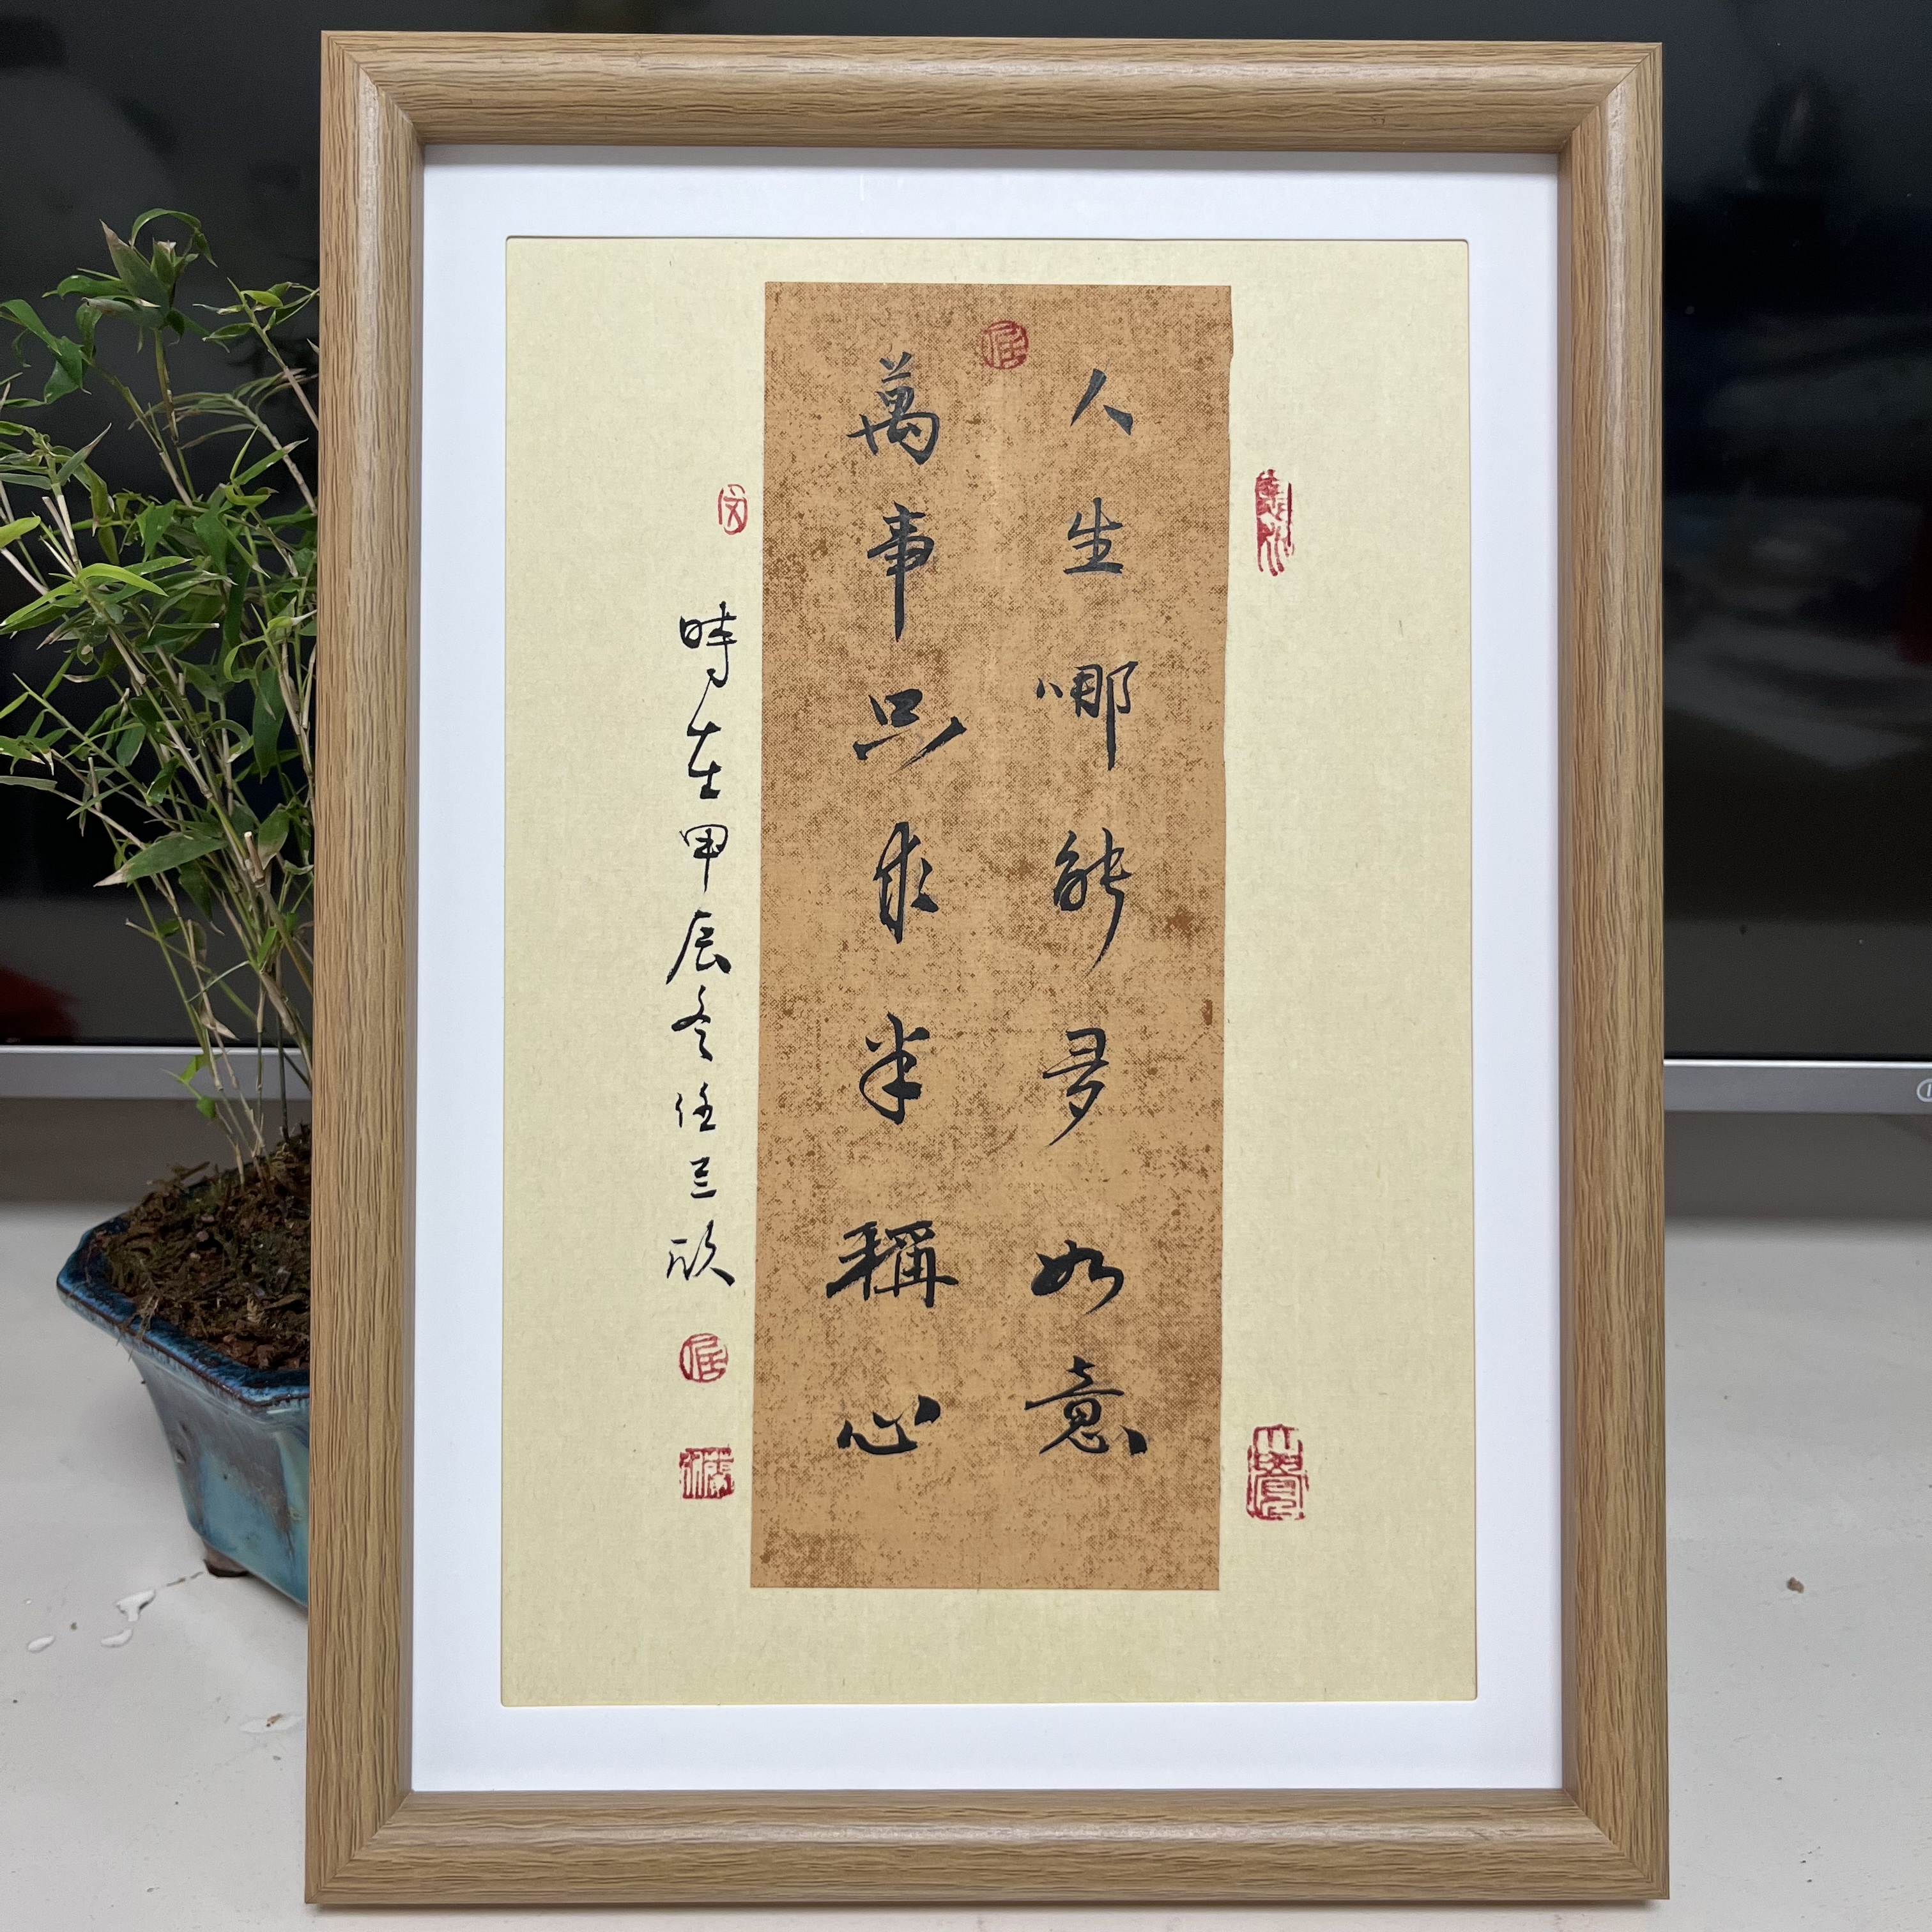 人生哪能多如意
萬事只求半稱心
時在甲辰冬任三欣